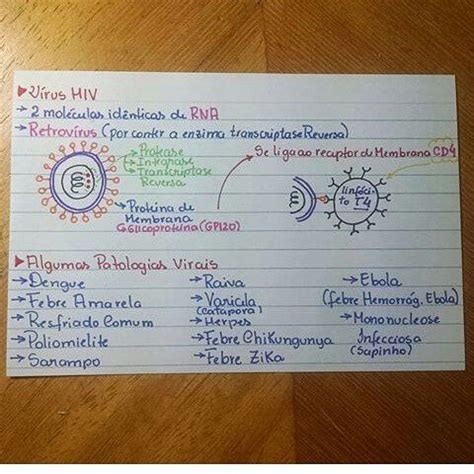 ▶Vírus HIV
→ 2 moléculas idênticas de RNA
→ Retrovírus (por conter a enzima transcriptase Reversa)
→ Protease
→ Integrase
→ Transcriptase
Reversa
→ Proteína de
Membrana
Gglicoproteína (GP120)
Se liga ao receptor de Membrana CD4
linfóci-
to T4
▶Algumas Patologias Virais
→ Dengue
→ Febre Amarela
→ Resfriado Comum
→ Poliomielite
→ Sarampo
→ Raiva
→ Varicela
(catapora)
→ Herpes
→ Febre Chikungunya
→ Febre Zika
→ Ebola
(febre Hemorrág. Ebola)
→ Mononucleose
Infecciosa
(Sapinho)